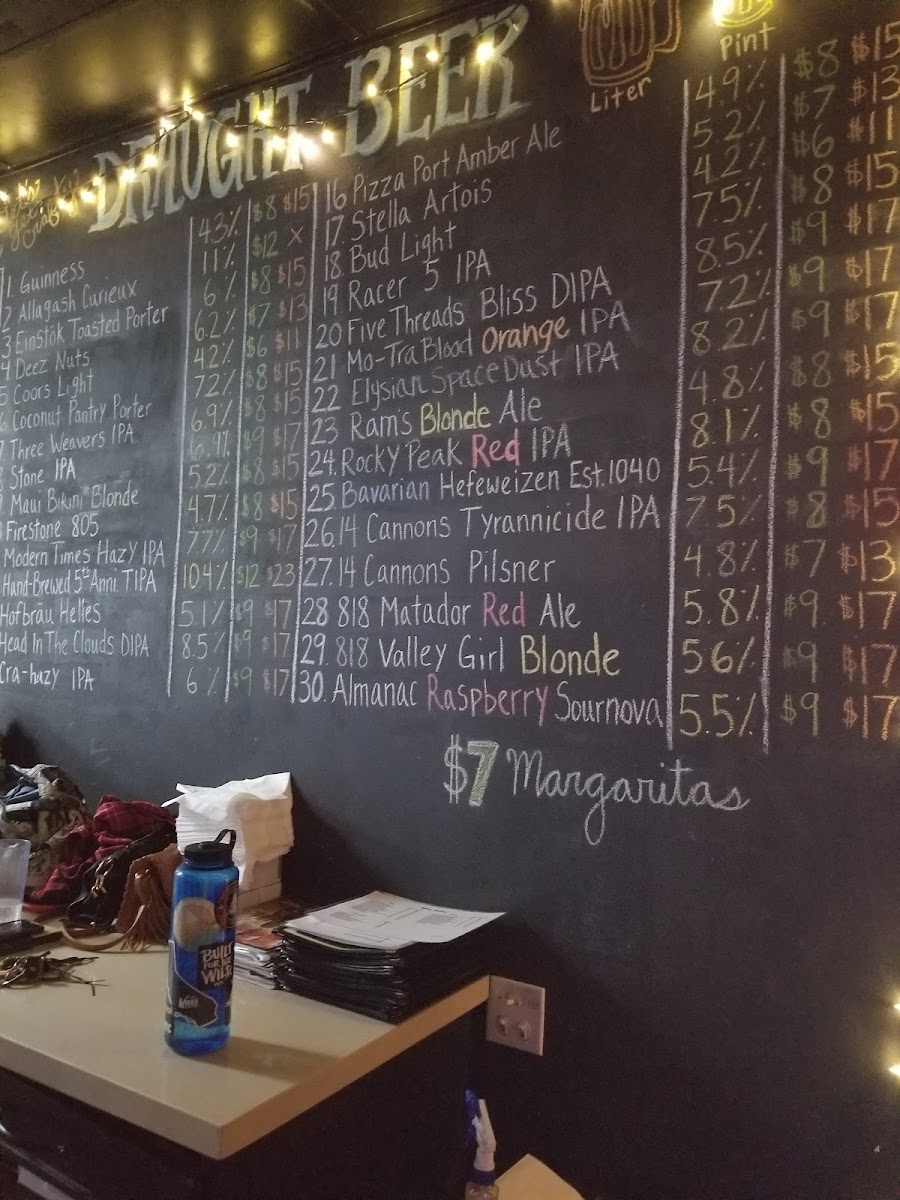 DRAUGHT BEER
Liter
Pint
1 Guinness 4.3% $8 $15
2 Allagash Curieux 11% $12 x
3 Einstök Toasted Porter 6% $8 $15
4 Deez Nuts 6.2% $7 $13
5 Coors Light 42% $6 $11
6 Coconut Pantry Porter 72% $8 $15
7 Three Weavers IPA 6.9% $8 $15
8 Stone IPA $9 $17
Maui Bikini Blonde 5.2% $8 $15
Firestone 805 4.7% $8 $15
Modern Times Hazy IPA 7.7% $9 $17
Hand-Brewed 5th Anni. TIPA 104% $12 $23
Hofbräu Helles 5.1% $9 $17
Head In The Clouds DIPA 8.5% $9 $17
Cra-hazy IPA 6% $9 $17
16 Pizza Port Amber Ale 4.9% $8 $15
17. Stella Artois 5.2% $7 $13
18. Bud Light 4.2% $6 $11
19 Racer 5 IPA 7.5% $8 $15
20 Five Threads Bliss DIPA 8.5% $9 $17
21 Mo-Tra Blood Orange IPA 72% $9 $17
22 Elysian Space Dust IPA 8.2% $9 $17
23 Ram's Blonde Ale 4.8% $8 $15
24. Rocky Peak Red IPA 8.1% $8 $15
25. Bavarian Hefeweizen Est. 1040 5.4% $9 $17
26. 14 Cannons Tyrannicide IPA 7.5% $8 $15
27. 14 Cannons Pilsner 4.8% $7 $13
28 818 Matador Red Ale 5.8% $9 $17
29. 818 Valley Girl Blonde 56% $9 $17
30. Almanac Raspberry Sournova 5.5% $9 $17
$7 Margaritas
BUILT
FOR THE
WILD